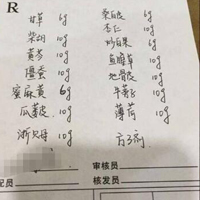 R
甘草 6g 桑白皮 6g
柴胡 10g 杏仁 10g
黄芩 10g 炒白果 6g
僵蚕 10g 鱼腥草 10g
蜜麻黄 6g 地骨皮 10g
瓜蒌皮 10g 牛蒡子 10g
浙贝母 10g 薄荷 10g
审核员
配员 核发员